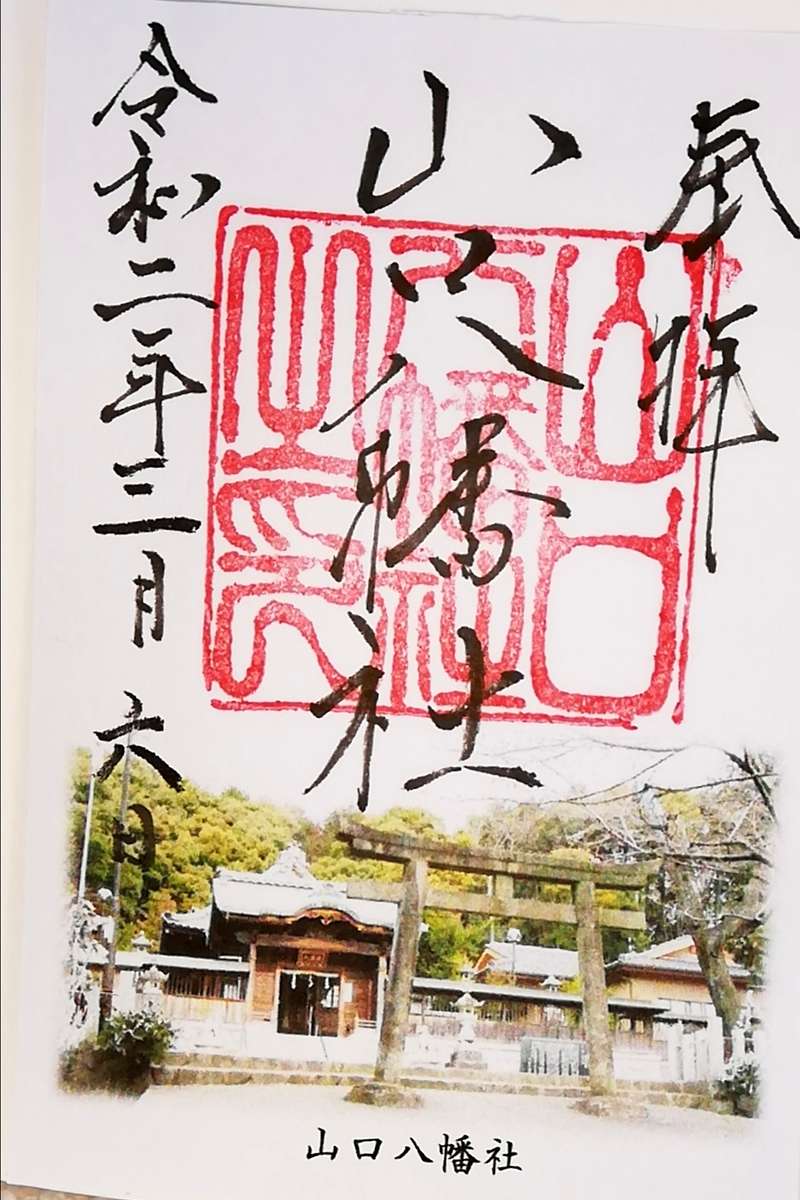 奉拝
山口八幡社
令和二年三月六日
山口八幡社之印
山口八幡社